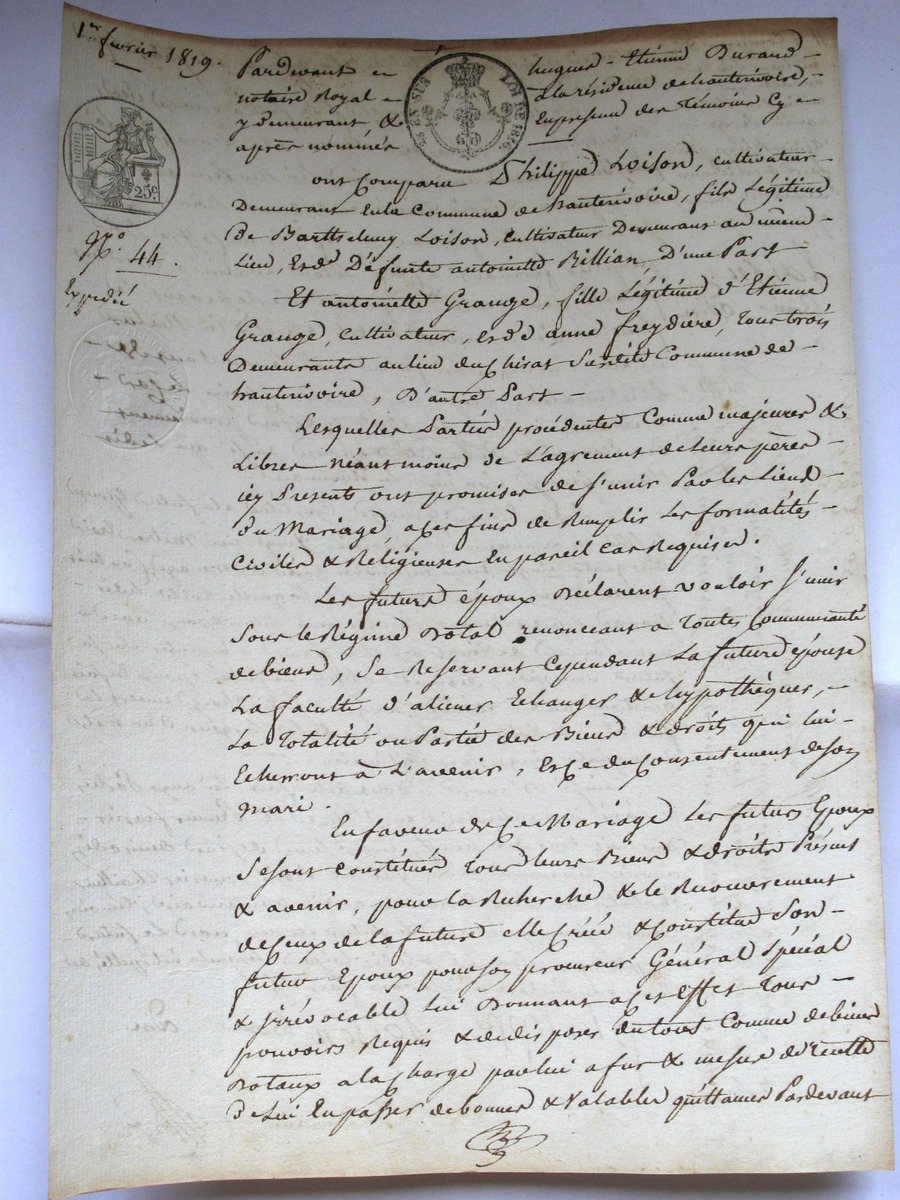 1er fevrier 1819.
Pardevant e hugues - Etienne Durand
notaire Royal a la résidence de hauterivoire,
y demeurant & En presence des Témoins Cy
après nommés
25 EN SUS LOI DE 1816
25c.
No. 44.
Expedié
ont Comparu Philippe Loison, cultivateur
Demeurant En la Commune de hauterivoire, fils Légitime
de Barthelemy Loison, Cultivateur Demeurant au meme
Lieu, Et de Défunte antoinette Rillian D'une Part
Et antoinette Grange, fille Légitime d'Etienne
Grange, cultivateur, et de anne freydière, Tous trois
Demeurants au lieu du Chirat Susdite Commune de
hauterivoire, D'autre Part
Lesquelles Parties procédentes Comme majeures &
Libres néantmoins de L'agrement de Leurs pères
icy Presents ont promises de s'unir Par les Liens
du Mariage, a ces fins de Remplir les formalités
Civiles & Religieuses En pareil Cas Requises.
Les futurs époux Déclarent vouloir s'unir
Sous le Régime Dotal renonceant a Toutes Communauté
de biens, Se Reservant Cependant La future épouse
La faculté d'aliener Echanger & hypothèquer,
La Totalité ou Partie des Biens & droits qui lui
Echerront à L'avenir, Et Ce du Consentement de son
mari.
En faveur de Ce Mariage Les futurs Epoux
Se sont Constitués Tous leurs Biens & droits Présents
& avenir, pour la Recherche & le Recouvrement
de Ceux de la future elle Créé & Constitue Son
futur Epoux pour son procureur Général Spécial
& irrévocable Lui Donnant a Cet Effet Tous
pouvoirs Requis & de disposer du tout Comme de biens
Dotaux a la Charge par lui a fur & mesure de recette
de Lui En passer de bonnes & Valables quittances Pardevant